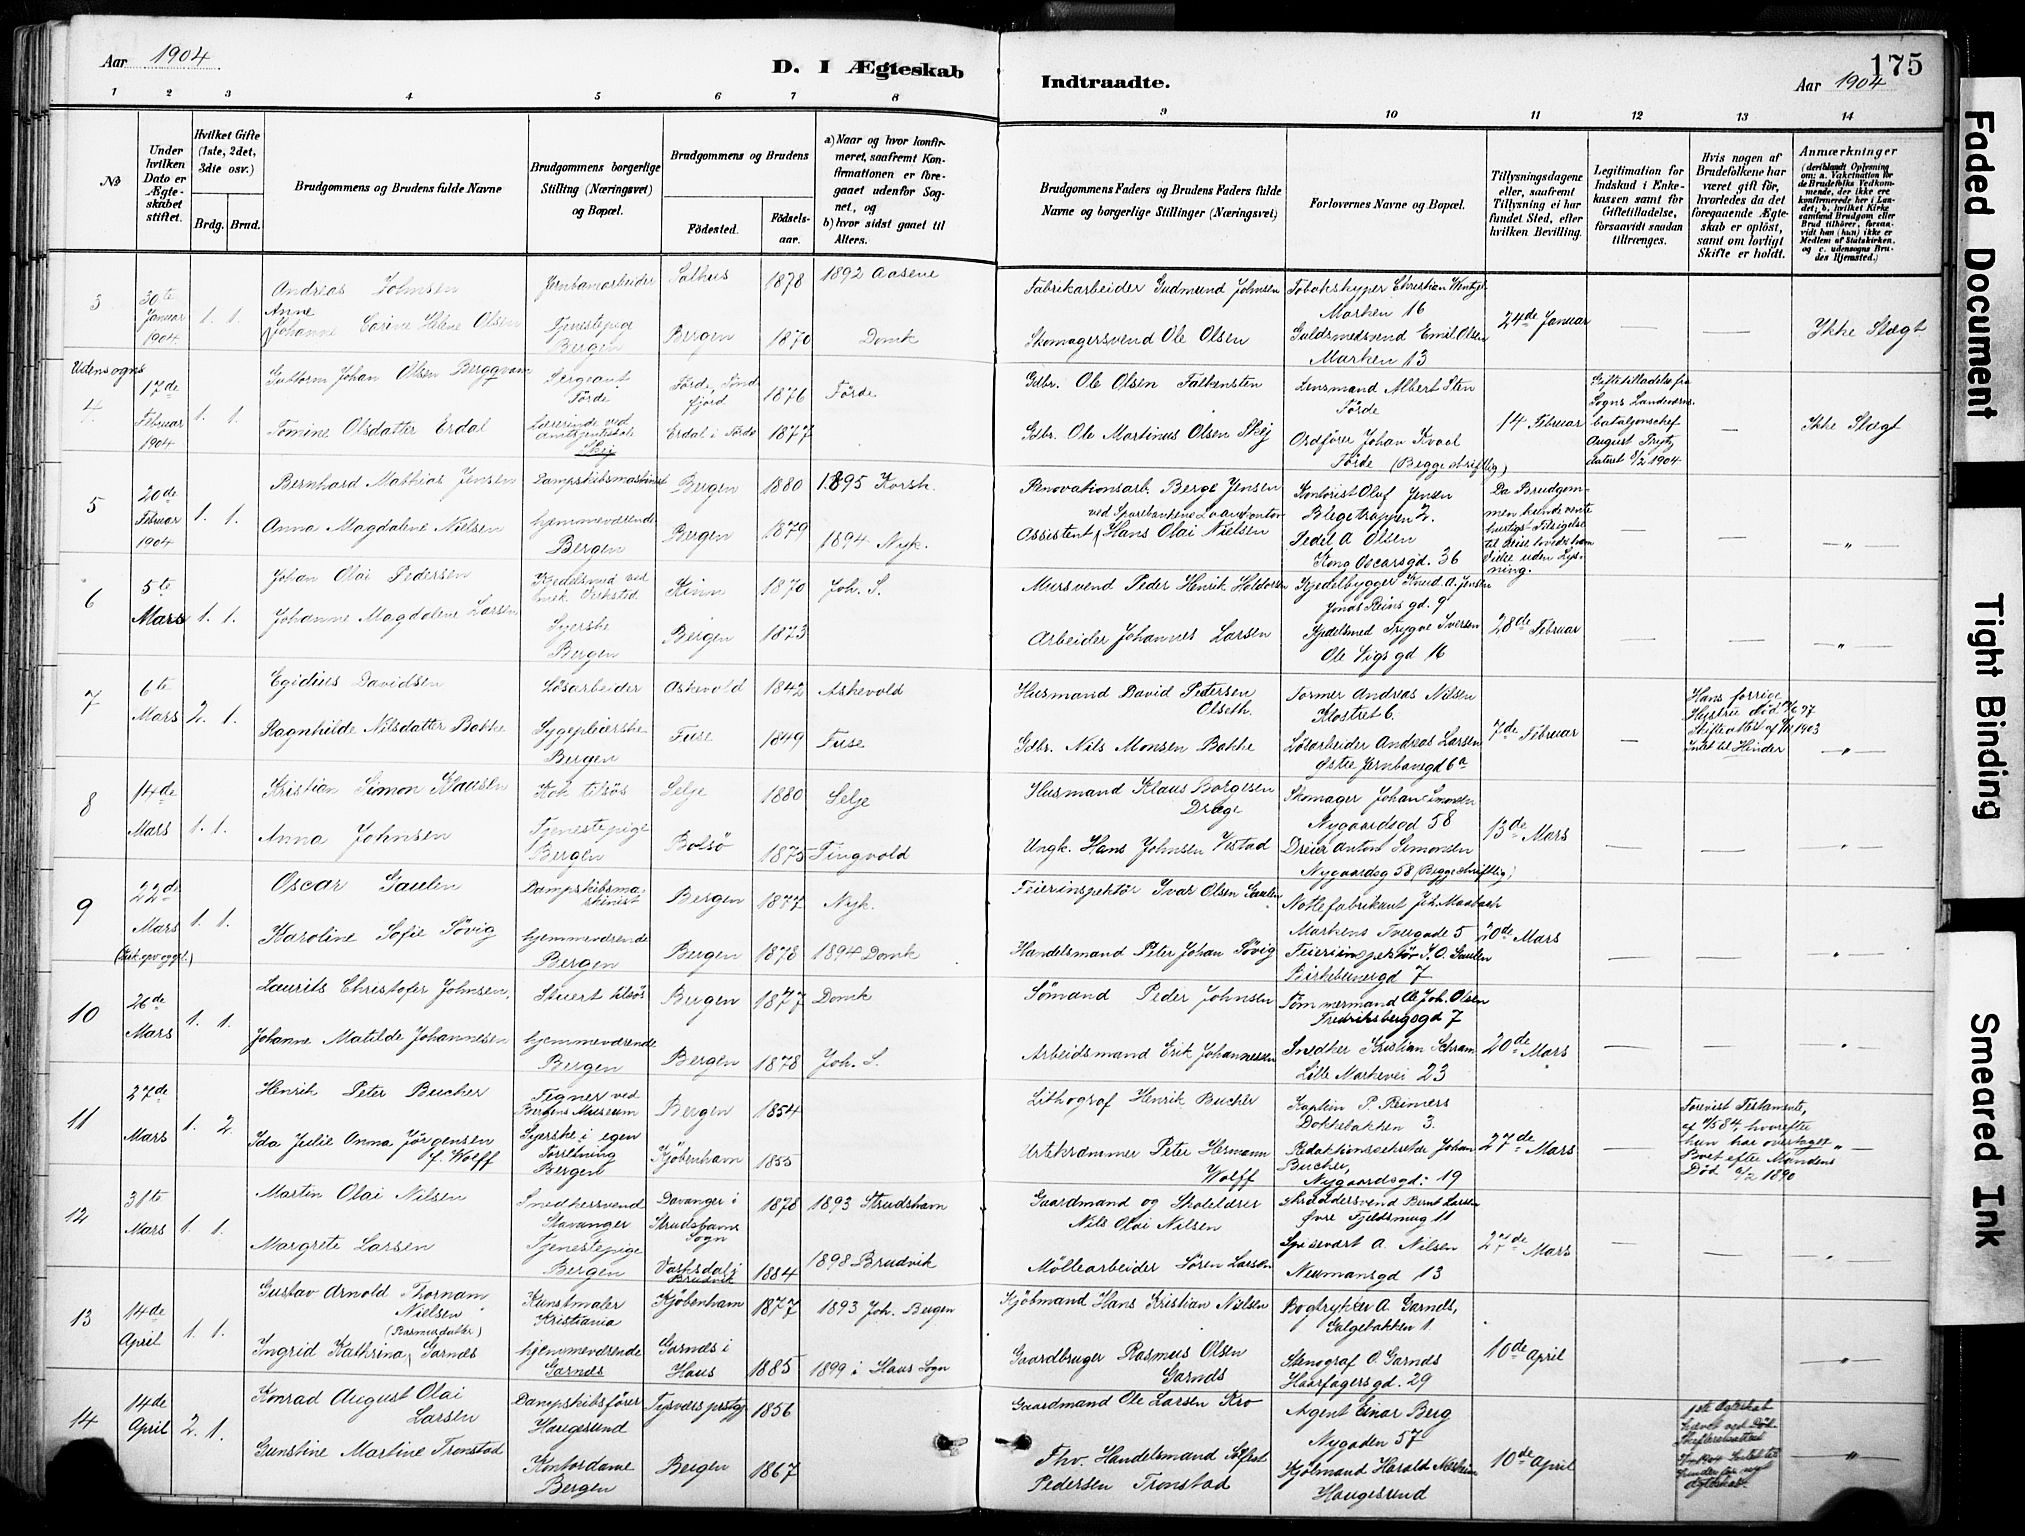 Aar 1904
D. I Ægteskab
Indtraadte.
175
Aar 1904
1 2 3 4 5 6 7 8
9 10 11 12 13 14
No
Under hvilken Dato er Ægteskabet stiftet.
Hvilket Gifte (1ste, 2det, 3die osv.)
Brdg. Brud.
Brudgommens og Brudens fulde Navne
Brudgommens borgerlige Stilling (Næringsvei) og Bopæl.
Brudgommens og Brudens
Födested.
Födselsaar.
a) Naar og hvor konfirmeret, saafremt Konfirmationen er foregaaet udenfor Sognet, og
b) hvor sidst gaaet til Alters.
Brudgommens Faders og Brudens Faders fulde Navne og borgerlige Stillinger (Næringsvei)
Forlovernes Navne og Bopæl.
Tillysningsdagene eller, saafremt Tillysning ei har fundet Sted, efter hvilken Bevilling.
Legitimation for Indskud i Enkekassen samt for Giftetilladelse, forsaavidt saadan tiltrænges.
Hvis nogen af Brudefolkene har været gift för, hvorledes da det foregaaende Ægteskab er oplöst, samt om lovligt Skifte er holdt.
Anmærkninger
(deriblandt Oplysning om: a. Vakcination for de Brudefolks Vedkommende, der ikke ere konfirmerede her i Landet; b. hvilket Kirkesamfund Brudgom eller Brud tilhörer, forsaavidt han (hun) ikke er Medlem af Statskirken, og c. udensogns Brudes Hjemsted.)
3 30te Januar 1904 1. 1.
Andreas Johnsen Jernbanearbeider Salhus 1878 1892 Aasene
Anne Johanne Carine Helene Olsen Tjenestepige Bergen Bergen 1870 Domk
Fabrikarbeider Gudmund Johnsen
Skomagersvend Ole Olsen
Tobakskyper Christian Wentzel Marken 16
Guldsmedsvend Emil Olsen Marken 13
24de Januar — — Ikke Slægt
Udensogns
4 17de Februar 1904 1. 1.
Guttorm Johan Olsen Berggvam Sergeant Förde Förde, Söndfjord 1876 Förde
Tomine Olsdatter Erdal Lærerinde ved Amtsjenteskole Skei Erdal i Förde 1877
Gdbr. Ole Olsen Falkensten
Gdbr. Ole Martinus Olsen Skej
Lensmand Albert Sten Förde
Ordförer Johan Kvael Förde (Begge skriftlig)
14 Februar
Giftetilladelse fra Sogns Landeværnsbataljonschef August dateret 8/2 1904
— Ikke Slægt
5 20de Februar 1904 1. 1.
Bernhard Mathias Jensen Dampskibsmaskinist Bergen 1880 1895 Korsk.
Anna Magdalene Nielsen hjemmeværende Bergen Bergen 1879 1894 Nyk.
Renovationsarb. Berge Jensen
ved Sparebankens Laanekontor
Assistent Hans Olai Nielsen
Kontorist Oluf Jensen Blegetrappen 2.
Fedel A Olsen Kong Oscarsgd. 36
Da Brudgommen kunde vente hurtigst Tilsigelse til Reise lovedes ham Vielse uden Lysning.
— — „ —
6 5te Mars 1. 1.
Johan Olai Pedersen Kjedelsmed ved mek Verksted Kinn 1870 Joh. S.
Johanne Magdalene Larsen Syerske Bergen Bergen 1873
Mursvend Peder Henrik Haldorsen
Arbeider Johannes Larsen
Kjedelbygger Knud A. Jensen Jonas Reins gd. 9
Kjedelsmed Trygve Iversen Ole Vigs gd 16
28de Februar — — „ —
7 6te Mars 2. 1.
Egidius Davidsen Lösarbeider Askevold 1842 Askevold
Ragnhilde Nilsdatter Bakke Sygepleierske Bergen Fuse 1849 Fuse
Husmand David Petersen Olseth.
Gdbr. Nils Monsen Bakke
Former Andreas Nilsen Klostret 6.
Lösarbeider Andreas Larsen Østre Jernbanegd 6a
7de Februar —
Hans forrige Hustru död 97 Skifteattest af 1903 Intet til Hinder
„ —
8 14de Mars 1. 1.
Kristian Simon Klausen Kok tilsös Selje 1880 Selje
Anna Johnsen Tjenestepige Bergen Bolsö 1875 Tingvold
Husmand Klaus Borgesen Drage
Ungk. Hans Johnsen Vistad
Skomager Johan Simonsen Nygaardsgd 58
Dreier Anton Simonsen Nygaardsg 58 (Begge skriftlig)
13de Mars — — „
9 22de Mars 1. 1.
Oscar Gaulen Dampskibsmaskinist Bergen 1877 Nyk.
Karoline Sofie Sövig hjemmeværende Bergen Bergen 1878 1894 Domk
Feierinspektör Ivar Olsen Gaulen
Handelsmand Peter Johan Sövig
Notfabrikant Joh. Markens Tvergade 5
Feierinspektör I. O. Gaulen Birkebeinergd 7
20de Mars — — „
10 26de Mars 1. 1.
Laurits Christofer Johnsen, Stuert tilsös Bergen 1877 Domk
Johanne Matilde Johannesen hjemmeværende Bergen Bergen 1878 Joh. S.
Sömand Peder Johnsen
Arbeidsmand Erik Johannesen
Tömmermand Ole Joh. Olsen Fredriksbergsgd 7
Snedker Kristian Schram Lille Markevei 23
20de Mars — — „
11 27de Mars 1. 2.
Henrik Peter Bucher Tegner ved Bergens Museum Bergen 1854
Ida Julie Anna Jörgensen f. Wolff Syerske i egen Forretning Bergen Kjöbenhavn 1855
Lithograf Henrik Bucher
Urtekræmmer Peter Hermann Wolff
Kaptein P. Reimers Dokkebakken 3.
Redaktionssekretær Johan Bucher, Nygaardsgd. 19
27de Mars —
Forevist Testamente, af 84, hvorefter hun har overtaget Boet efter Mandens Död 1890
„ —
12 31te Mars 1. 1.
Martin Olai Nilsen Snedkersvend Stavanger Davanger i Strudshavns Sogn 1878 1893 Strudshavn
Margrete Larsen Tjenestepige Bergen Vaksdal i Brudvik 1884 1898 Brudvik
Gaardmand og Skolelærer Nils Olai Nilsen
Möllearbeider Sören Larsen
Skræddersvend Bernt Larsen Øvre Fjeldsmug 11
Spisevært A. Nilsen Neumansgd 13
27de Mars — — „
13 14de April 1. 1.
Gustav Arnold Thornam Nielsen Kunstmaler Kristiania Kjöbenhavn 1877 1893 Joh. Bergen
(Rasmusdatter)
Ingrid Kathrina Garnæs hjemmeværende Garnæs Garnæs i Haus 1885 1899 i Haus Sogn
Kjöbmand Hans Kristian Nielsen
Gaardbruger Rasmus Olsen Garnæs
Bogtrykker A. Garnæs, Galgebakken 1.
Stenograf O. Garnæs Haarfagersgd. 29
10de April — — „ —
14 14de April 2. 1.
Konrad August Olai Larsen Dampskibsförer Haugesund Tysvær prstgj 1856
Gunstine Martine Tronstad Kontordame Bergen Bergen 1867
Gaardmand Ole Larsen Kro
Fhv. Handelsmand Pedersen Tronstad
Agent Einar Berg Nygaden 57
Kjöbmand Harald Haugesund
10de April —
1ste Ægteskab hævet ved Död.
„ —
Faded Document
Tight Binding
Smeared Ink